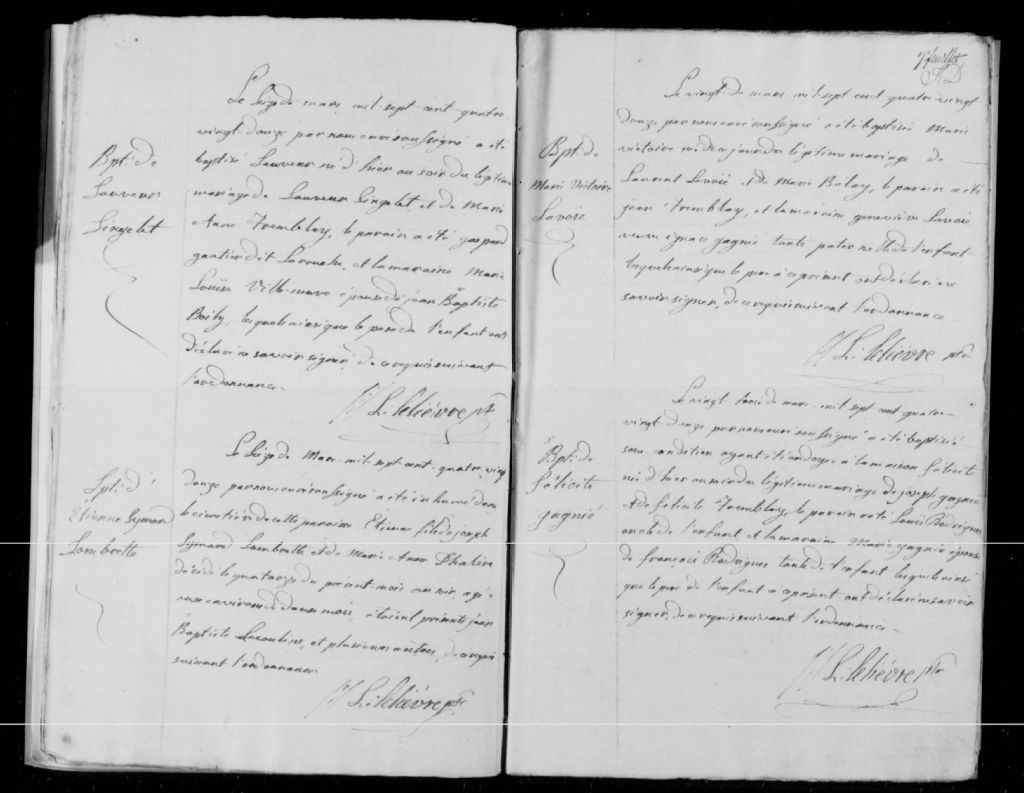 Bpt. de
Sauveur
Lengelet
Le Seize de mars mil-sept-cent-quatre-
vingt-douze par nous curé soussigné a été
baptisé Sauveur né d'hier au soir du légitime
mariage de Sauveur Lengelet, et de Marie
Anne Tremblay, le parain a été gaspard
gautier dit Larouche, et la maraine Marie
Louise Villeneuve épouse de jean Baptiste
Boily, lesquels ainsi que le pere de l'enfant ont
déclaré ne savoir signer, de ce requis suivant
l'ordonnance.
L. lelièvre ptr
Spt. d'
Etienne Symard
Lombrette
Le Seize de Mars mil-sept-cent-quatre-vingt
douze par nous curé soussigné a été inhumé dans
le cimetière de cette paroisse Etienne fils de joseph
Symard Lombrette et de Marie Anne
décédé le quatorze du présent mois au soir agé
aux environs d'un mois, étoient présents jean
Baptiste et plusieurs autres, de ce requis
suivant l'ordonnance.
L. lelièvre ptr
7e feuillet
Bpt. de
Marie Victoire
Lavoïe
Le vingt de mars mil-sept cent quatre-vingt
douze par nous curé soussigné a été baptisée Marie
victoire née de ce jour du légitime mariage de
Laurent Lavoïe et de Marie Bolay, le parain a été
jean Tremblay, et la maraine genevieve Lavoïe
veuve ignace gagné tante paternelle de l'enfant
lesquels ainsi que le pere à ce présent ont déclaré ne
savoir signer, de ce requis suivant l'ordonnance
L. lelièvre ptr
Bpt. de
félicité
gagnié
Le vingt-trois de mars mil sept cent quatre-
vingt douze par nous curé soussigné a été baptisée
sous condition ayant été ondoyée à la maison félicité
née d'hier au midi du légitime mariage de joseph gagnié
et de félicité Tremblay, le parain a été Louis Rodrigues
oncle de l'enfant et la maraine Marie gagnié épouse
de françois Rodrigues tante de l'enfant lesquels ainsi
que le pere de l'enfant à ce présent ont déclaré ne savoir
signer, de ce requis suivant l'ordonnance.
L. lelièvre ptr